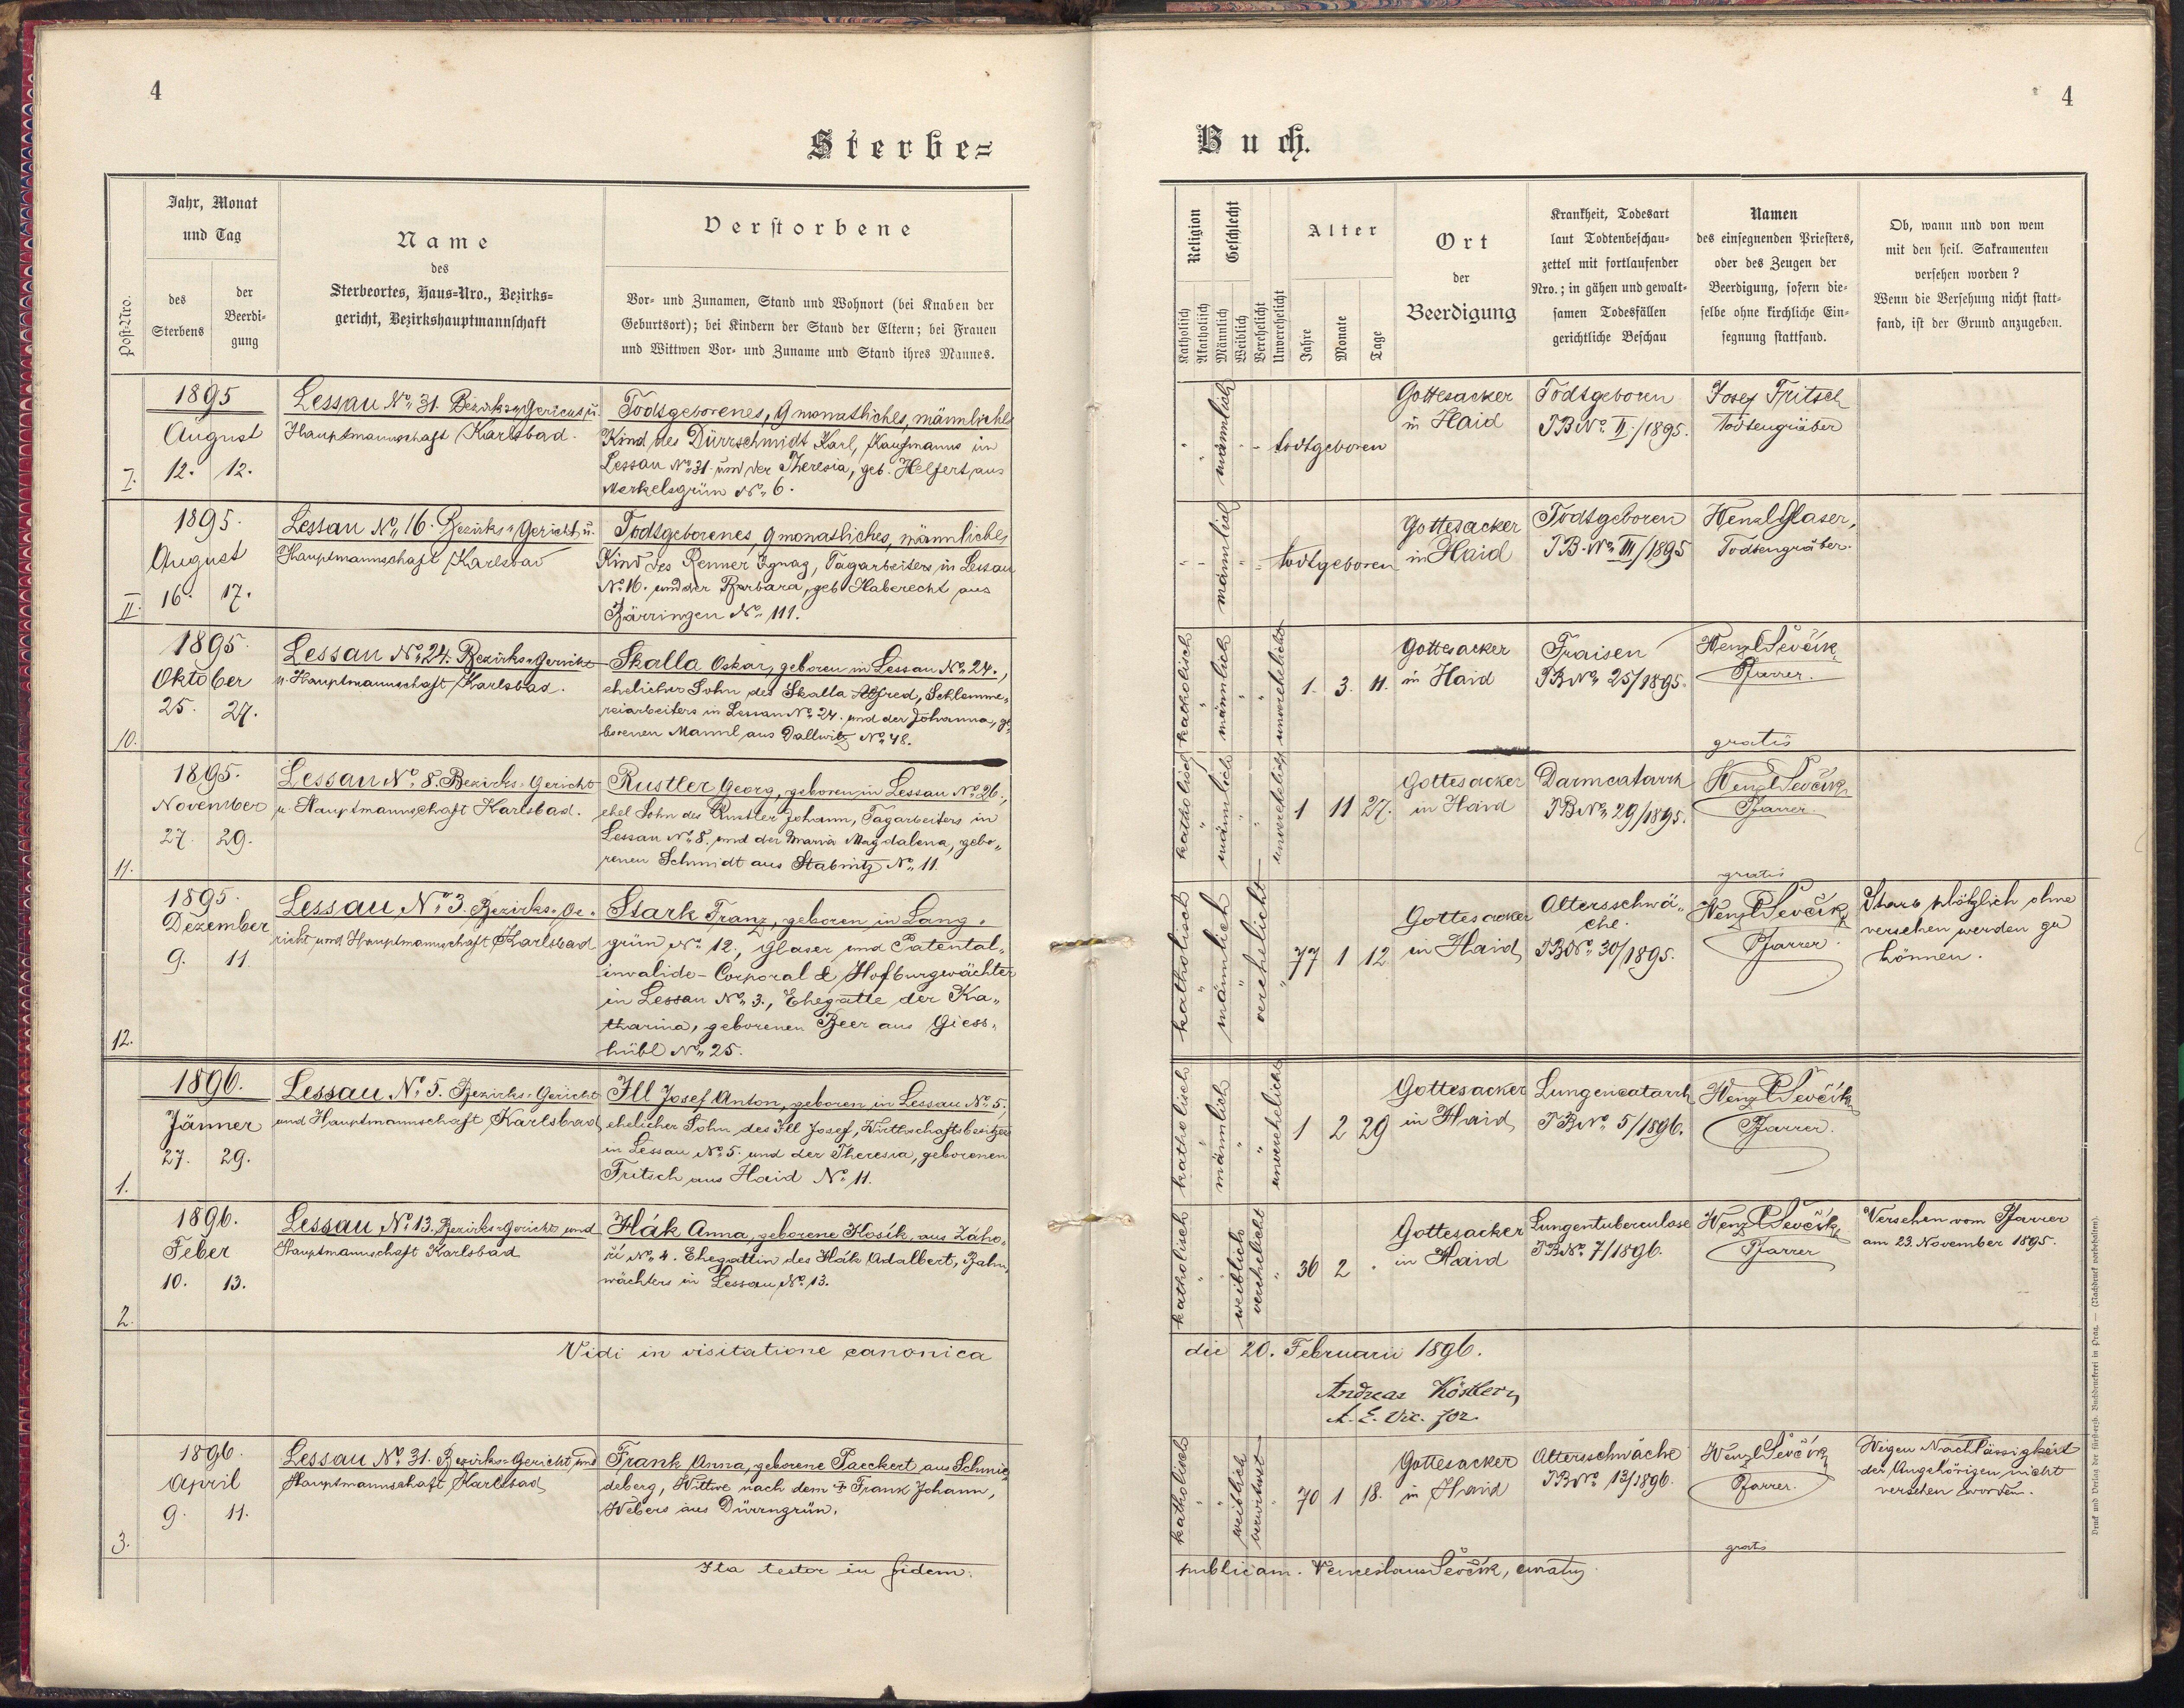 4
Sterbe=
Jahr, Monat
und Tag
des
Sterbens
der
Beerdi=
gung
Post-Nro.
Name
des
Sterbeortes, Haus=Nro., Bezirks=
gericht, Bezirkshauptmannschaft
Verstorbene
Vor- und Zunamen, Stand und Wohnort (bei Knaben der
Geburtsort); bei Kindern der Stand der Eltern; bei Frauen
und Wittwen Vor- und Zuname und Stand ihres Mannes.
I.
1895
August
12. 12.
Lessau No. 31. Bezirksgericht u.
Hauptmannschaft Karlsbad.
Todtgeborenes, 9 monatliches, männliches
Kind des Dürrschmidt Karl, Kaufmanns in
Lessau No. 31. und der Theresia, geb. Helfert, aus
Merkelsgrün No. 6.
II.
1895.
August
16. 17.
Lessau No. 16. Bezirks-Gericht u.
Hauptmannschaft Karlsbad
Todtgeborenes, 9 monatliches, männliches
Kind des Renner Ignaz, Tagarbeiters, in Lessau
No. 16. und der Barbara, geb. Haberecht aus
Bärringen No. 111.
10.
1895.
Oktober
25. 27.
Lessau No. 24. Bezirks-Gericht
u. Hauptmannschaft Karlsbad.
Skalla Oskar, geboren in Lessau No. 24.,
ehelicher Sohn des Skalla Alfred, Schlemme„
reiarbeiters in Lessau No. 24. und der Johanna, ge„
borenen Mannl aus Dallwitz No. 48.
11.
1895.
November
27. 29.
Lessau No. 8. Bezirks-Gericht
u. Hauptmannschaft Karlsbad.
Rustler Georg, geboren in Lessau No. 26.,
ehel Sohn des Rustler Johann, Tagarbeiters in
Lessau No. 8. und der Maria Magdalena, gebo„
renen Schmidt aus Stabnitz No. 11.
12.
1895.
Dezember
9. 11.
Lessau No. 3. Bezirks-Ge„
richt und Hauptmannschaft Karlsbad
Stark Franz, geboren in Lang„
grün No. 12., Glaser und Patental„
invalide-Corporal & Hofburgwächter
in Lessau No. 3., Ehegatte der Ka„
tharina, geborenen Beer aus Giess„
hübl No. 25.
1.
1896.
Jänner
27. 29.
Lessau No. 5. Bezirks-Gericht
und Hauptmannschaft Karlsbad
Ill Josef Anton, geboren in Lessau No. 5.
ehelicher Sohn des Ill Josef, Wirthschaftsbesitzers
in Lessau No. 5. und der Theresia, geborenen
Fritsch aus Haid No. 11.
2.
1896.
Feber
10. 13.
Lessau No. 13. Bezirks-Gericht und
Hauptmannschaft Karlsbad
Hák Anna, geborene Kosík, aus Záho„
ří No. 4. Ehegattin des Hák Adalbert, Bahn„
wächters in Lessau No. 13.
Vidi in visitatione canonica
3.
1896.
April
9. 11.
Lessau No. 31. Bezirks-Gericht und
Hauptmannschaft Karlsbad
Frank Anna, geborene Paeckert aus Schmie„
deberg, Wittwe nach dem † Frank Johann,
Webers aus Dürrngrün.
Ita testor in fidem.
4
Buch.
Religion
Katholisch
Akatholisch
Geschlecht
Männlich
Weiblich
Verehelicht
Unverehelicht
Alter
Jahre
Monate
Tage
Ort
der
Beerdigung
Krankheit, Todesart
laut Todtenbeschau=
zettel mit fortlaufender
Nro.; in gähen und gewalt=
samen Todesfällen
gerichtliche Beschau
Namen
des einsegnenden Priesters,
oder des Zeugen der
Beerdigung, sofern die=
selbe ohne kirchliche Ein=
segnung stattfand.
Ob, wann und von wem
mit den heil. Sakramenten
versehen worden?
Wenn die Versehung nicht statt=
fand, ist der Grund anzugeben.
männlich
todtgeboren
Gottesacker
in Haid
Todtgeboren
TB No. II./1895.
Josef Fritsch
Todtengräber
männlich
todtgeboren
Gottesacker
in Haid
Todtgeboren
TB. No. III/1895
Wenzl Glaser,
Todtengräber.
katholisch
männlich
unverehelicht
1. 3. 11.
Gottesacker
in Haid
Fraisen
TB No. 25/1895.
Wenzl Ševčík
Pfarrer.
gratis
katholisch
männlich
unverehelicht
1 11 27.
Gottesacker
in Haid
Darmcatarrh
TB No. 29/1895.
Wenzl Ševčík
Pfarrer.
gratis
katholisch
männlich
verehelicht
77 1 12
Gottesacker
in Haid
Altersschwä„
che.
TB No. 30/1895.
Wenzl Ševčík
Pfarrer.
Starb plötzlich ohne
versehen werden zu
können.
katholisch
männlich
unverehelicht
1 2 29
Gottesacker
in Haid
Lungencatarrh
TB No. 5/1896.
Wenzl Ševčík
Pfarrer.
katholisch
weiblich
verehelicht
36 2 .
Gottesacker
in Haid
Lungentuberculose
TB No. 7/1896.
Wenzl Ševčík
Pfarrer
Versehen vom Pfarrer
am 23. November 1895.
die 20. Februarii 1896.
Andreas Köstler
A. E. Vic. for.
katholisch
weiblich
verwitwet
70 1 18.
Gottesacker
in Haid
Altersschwäche
TB No. 13/1896.
Wenzl Ševčík
Pfarrer.
gratis
Wegen Nachlässigkeit
der Angehörigen nicht
versehen worden.
publicam. Venceslaus Ševčík, curatus
Druck und Verlag der fürsterzb. Buchdruckerei in Prag. — (Nachdruck vorbehalten).